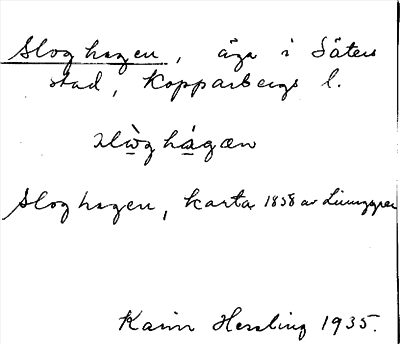 Sloghagen, äga i Säters
stad, Kopparbergs l.
slòghágæn
Sloghagen, karta 1858 av Ljunggren
Karin Hessling 1935.